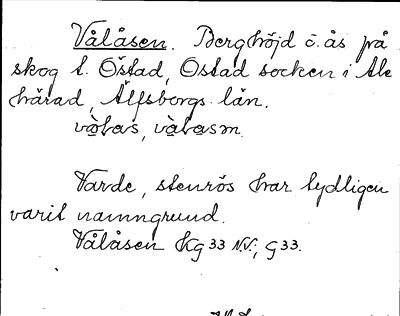 Vålåsen. Berghöjd o. ås på
skog t. Östad, Östad socken i Ale
härad, Älfsborgs län.
vålas, vålasm.
Varde, stenrös har tydligen
varit namngrund.
Vålåsen Kg 33 N.V.; G 33.